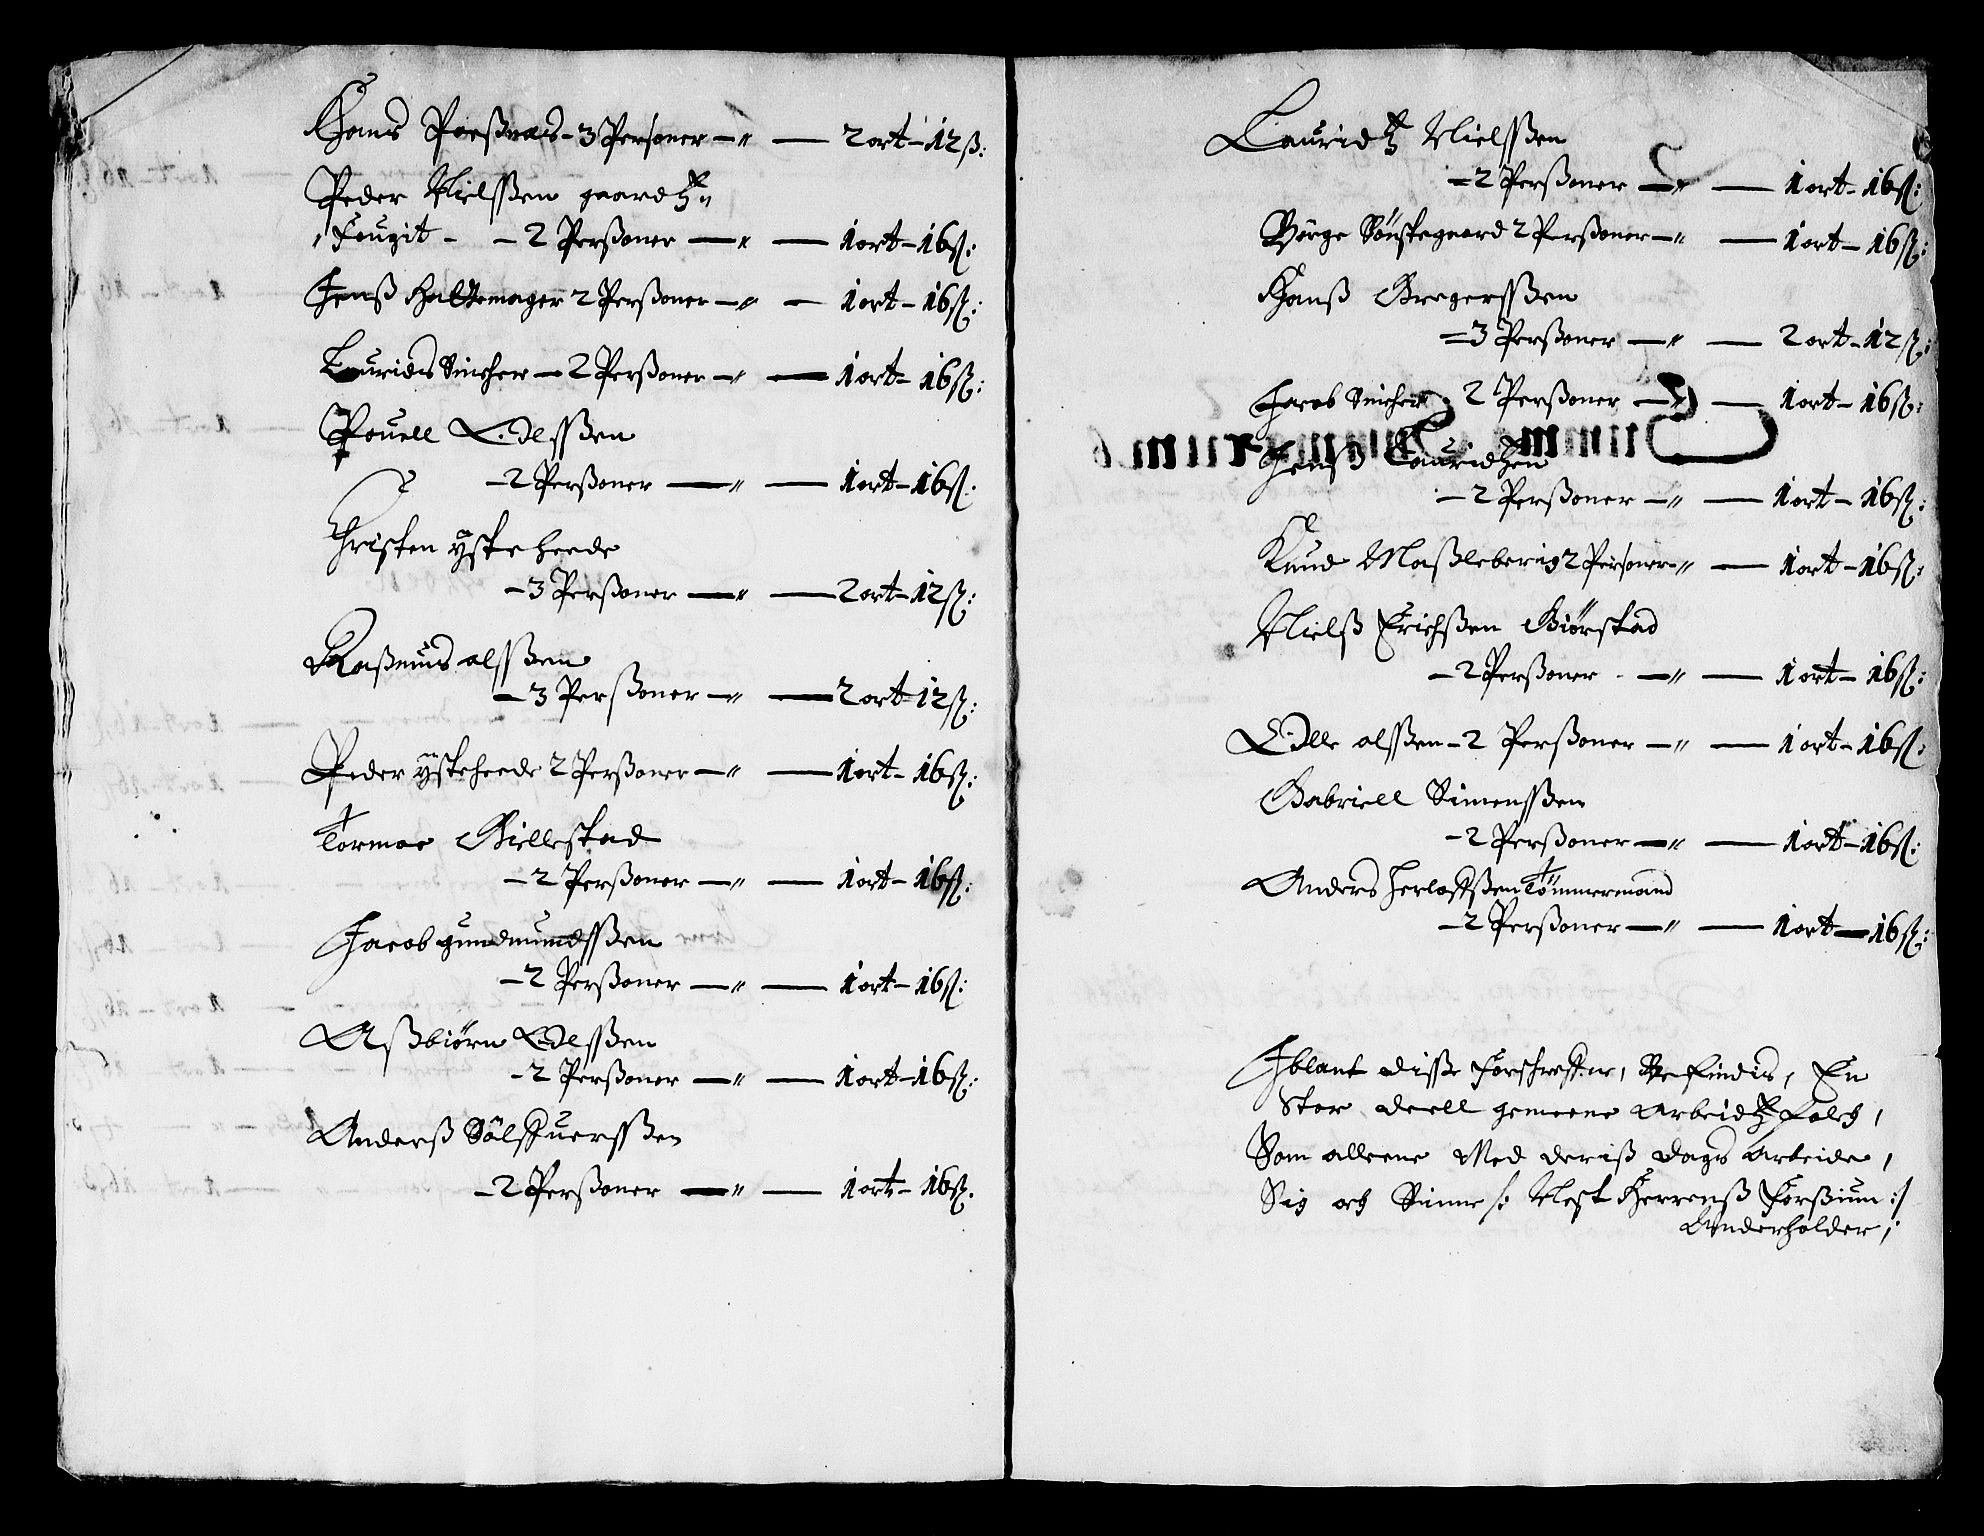 Hans Porßnes - 3 Personer - " - 2 ort - 12 ß:
Peder Nielsßen gaardtz
Fougit - - 2 Perßoner - " - 1 ort - 16 ß:
Jenß Hattemager 2 Perßoner - " - 1 ort - 16 ß:
Laurids Snicher - 2 Perßoner - " - 1 ort - 16 ß:
Pouell Edelsßen
- 2 Perßoner - " - 1 ort - 16 ß:
Christen ÿsteheede
- 3 Perßoner - " - 2 ort - 12 ß:
Raßmus olsßen
- 3 Perßoner - " - 2 ort - 12 ß:
Peder ÿsteheede 2 Perßoner - " - 1 ort - 16 ß:
Tormoe Gillestad
- 2 Perßoner - " - 1 ort - 16 ß:
Jacob gundmundsßen
- 2 Perßoner - " - 1 ort - 16 ß:
Aßbiörn Edelsßen
- 2 Perßoner - " - 1 ort - 16 ß:
Anderß Sölffuersßen
- 2 Perßoner - " - 1 ort - 16 ß.
Lauridtz Nielsßen
- 2 Perßoner - " - 1 ort - 16 ß:
Börge Sönstegaard 2 Perßoner - " - 1 ort - 16 ß:
Hanß Gregersßen
- 3 Perßoner - " - 2 ort - 12 ß:
Jacob Snicher 2 Perßoner - " - 1 ort - 16 ß:
Jenß Lauridtzen
- 2 Perßoner - " - 1 ort - 16 ß:
Knud Maßleberig 2 Personer - " - 1 ort - 16 ß:
Nielß Erichßen Biörstad
- 2 Perßoner - " - 1 ort - 16 ß:
Edle olsßen - 2 Perßoner - " - 1 ort - 16 ß:
Gabriell Simensßen
- 2 Perßoner - " - 1 ort - 16 ß:
Anders Herloffßen Tömmermand
- 2 Perßoner - " - 1 ort - 16 ß:
Jblant disse Forschreffne, Befindis, En
Stor deell gemeene arbeidtz Folch,
Som alleene Med deriß dags arbeide,
Sig och Sinne /: Nest Herrenß Forßiun :/
Underholder,